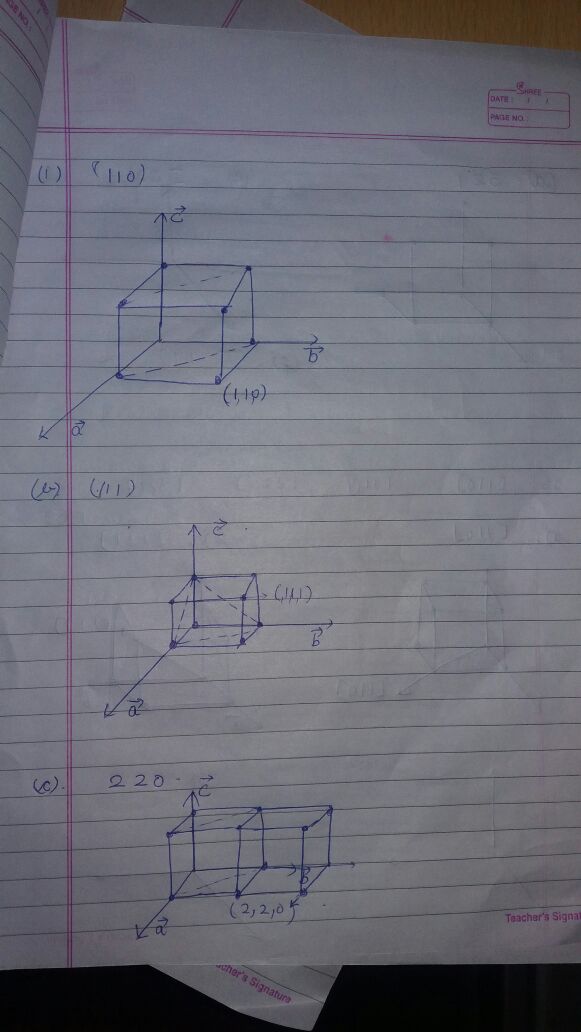 PAGE NO.:
SHREE
DATE: / /
PAGE NO.:
(1) (110)
c
b
(1,1,0)
a
(b) (111)
c
(1,1,1)
b
a
(c). 220
c
b
(2,2,0)
a
Teacher's Signat
cher's Signature